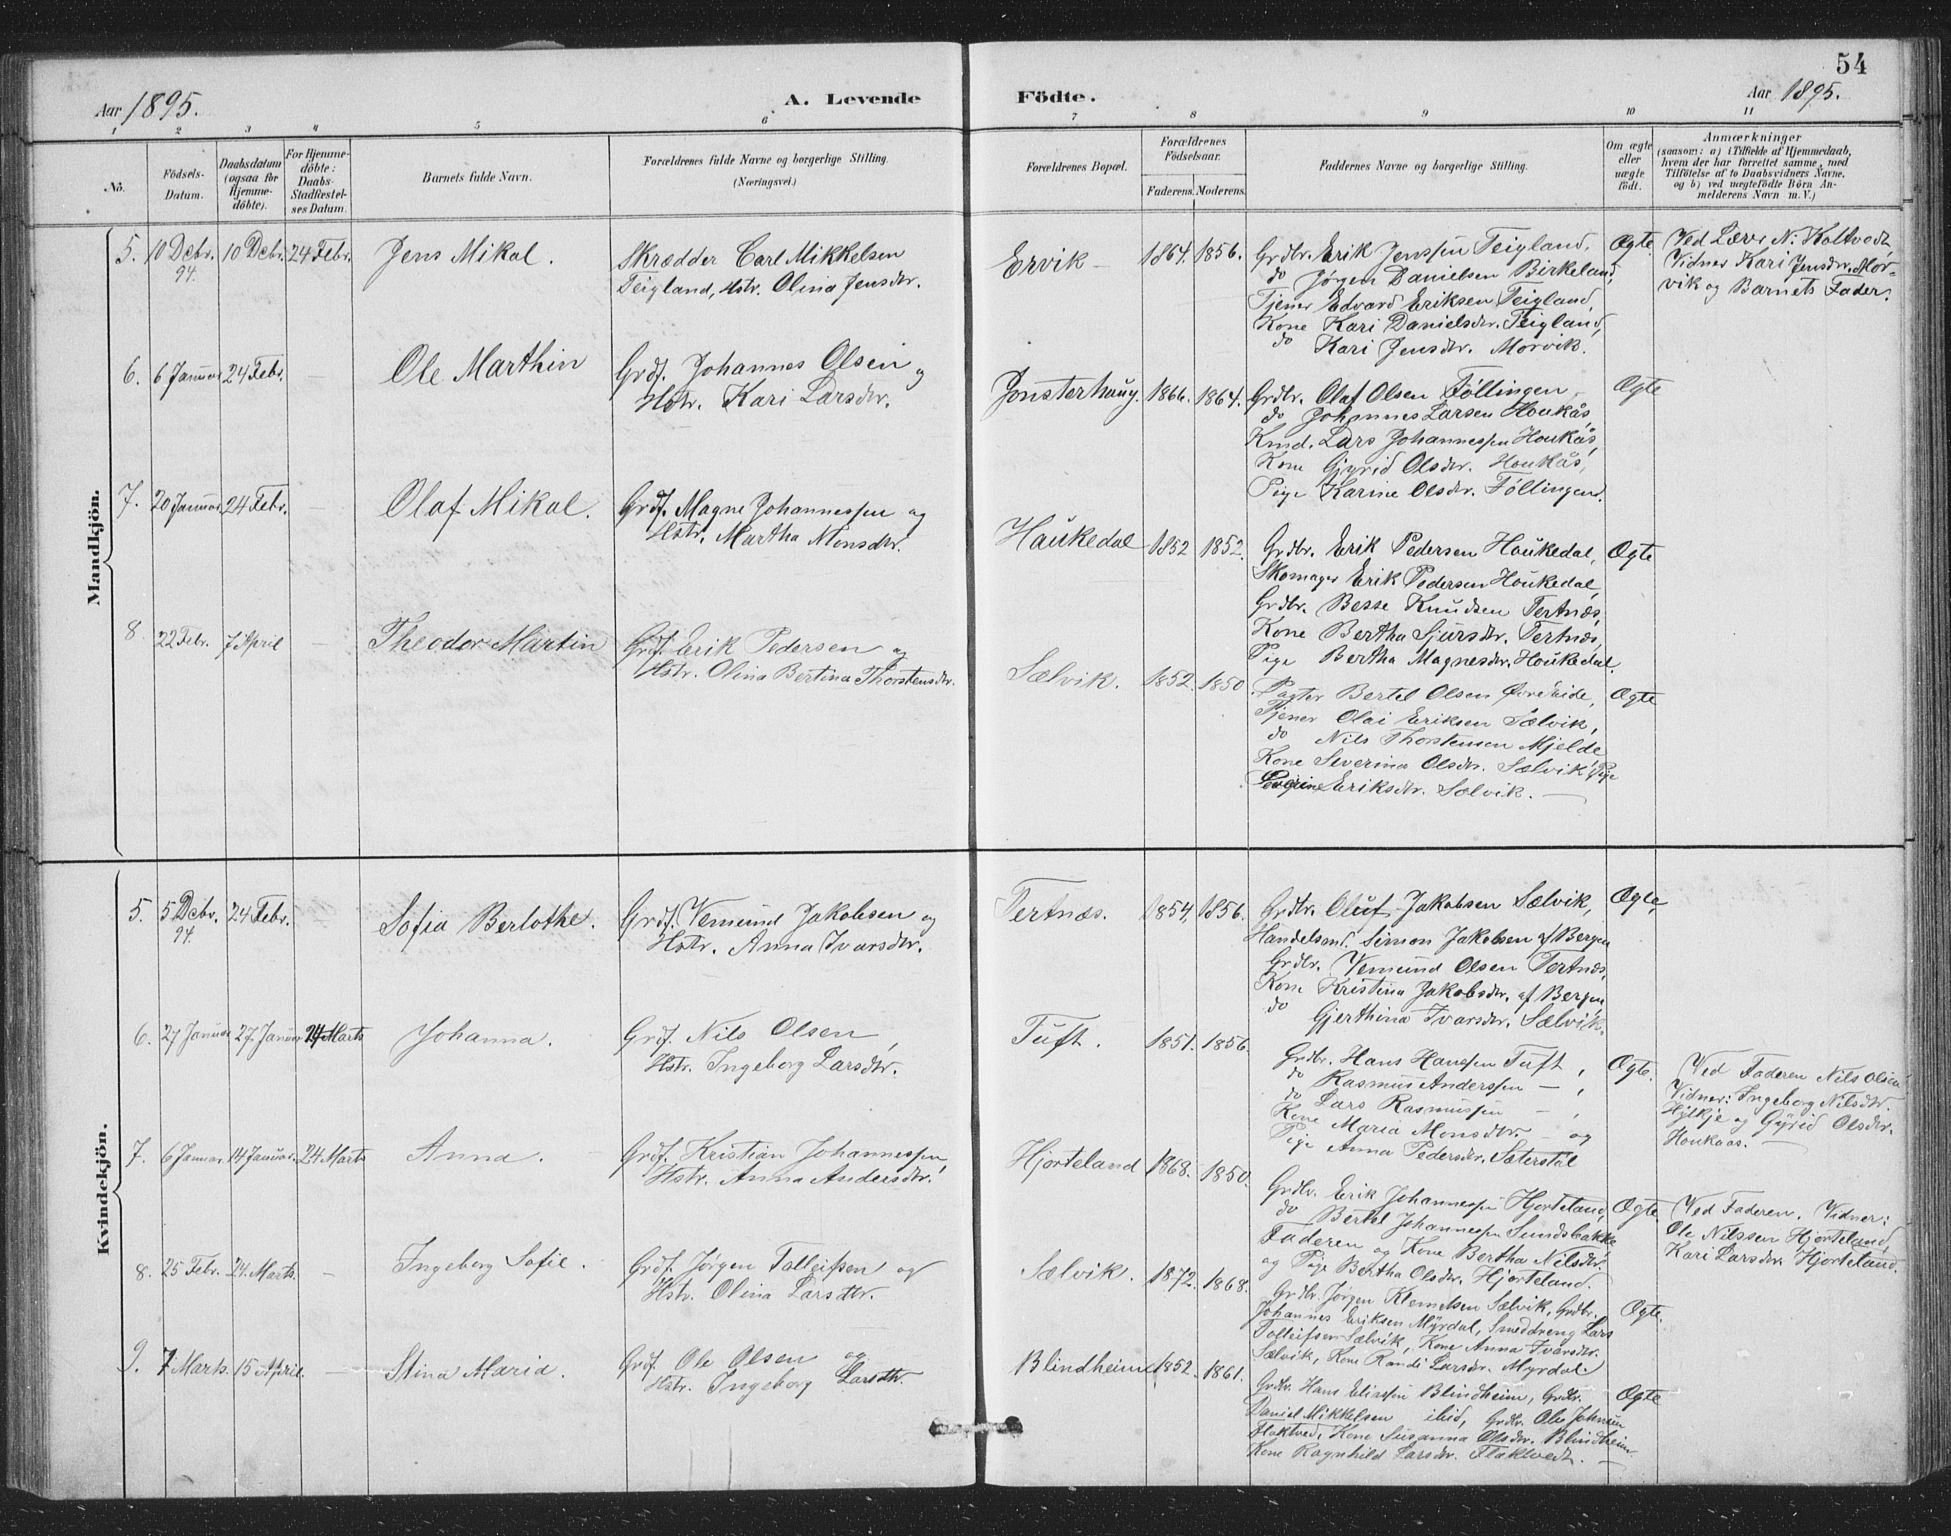 54
Aar 1895.
A. Levende Födte.
Aar 1895.
1 2 3 4 5 6 7 8 9 10 11
No.
Födsels-
Datum.
Daabsdatum
(ogsaa for
Hjemme-
döbte).
For Hjemme-
döbte:
Daabs-
Stadfæstel-
ses Datum.
Barnets fulde Navn.
Forældrenes fulde Navne og borgerlige Stilling.
(Næringsvei.)
Forældrenes Bopæl.
Forældrenes
Födselsaar.
Faderens. Moderens.
Faddernes Navne og borgerlige Stilling.
Om ægte
eller
uægte
födt.
Anmærkninger
(saasom: a) i Tilfælde af Hjemmedaab,
hvem der har forrettet samme, med
Tilföielse af to Daabsvidners Navne,
og b) ved uægtefödte Börn An-
melderens Navn m. V.)
Mandkjön.
5. 10 Dcbr. 94. 10 Dcbr. 24 Febr. Jens Mikal.
Skrædder Carl Mikkelsen
Teigland, Hstr. Olina Jensdtr.
Ervik – 1864. 1856.
Grdbr. Erik Jenssen Teigland,
do Jørgen Danielsen Birkeland,
Tjener Edvard Eriksen Teigland
Kone Kari Danielsdtr. Teigland,
do Kari Jensdtr. Morvik.
Ægte
Ved Lærer N. Koltvedt,
Vidner Kari Jensdtr. Mor-
vik og Barnets Fader.
6. 6 Januar 24 Febr. – Ole Marthin
Grdf. Johannes Olsen og
Hstr. Kari Larsdtr.
Jonsterhaug. 1866. 1864.
Grdbr. Olaf Olsen Föllingen
do Johannes Larsen Houkås
Kmd. Lars Johannessen Houkås,
Kone Gjyrid Olsdtr. Houkås,
Pige Karine Olsdtr. Föllingen.
Ægte
7. 20 Januar 24 Febr. – Olaf Mikal.
Grdf. Magne Johannessen og
Hstr. Martha Monsdtr.
Haukedal 1852 1852.
Grdbr. Erik Pedersen Haukedal,
Skomager Erik Pedersen Houkedal
Grdbr. Besse Knudsen Tertnæs,
Kone Bertha Sjursdtr. Tertnæs,
Pige Bertha Magnesdtr. Houkedal.
Ægte
8. 22 Febr. 7 April – Theodor Martin
Grdf. Erik Pedersen og
Hstr. Olina Bertina Thorstensdtr.
Sælvik. 1852. 1850.
Pagter Bertel Olsen Øvreeide,
Tjener Olai Eriksen Sælvik,
do Nils Thorstensen Mjelde
Kone Severina Olsdtr. Sælvik, Pige
Eriksdtr. Sælvik. –
Ægte
Kvindekjön.
5. 5 Dcbr. 94. 24 Febr. Sofia Berlothe.
Grdf. Vemund Jakobsen og
Hstr. Anna Ivarsdtr.
Tertnæs. 1854. 1856.
Grdbr. Oluf Jakobsen Sælvik,
Handelsmd. Simon Jakobsen af Bergen
Grdbr. Vemund Olsen Tertnæs,
Kone Kristina Jakobsdtr. af Bergen
do Gjerthina Ivarsdtr. Sælvik.
Ægte,
6. 27 Januar 27 Januar 24 Marts Johanna.
Grdf. Nils Olsen,
Hstr. Ingeborg Larsdtr.
Tuft. 1851. 1856.
Grdbr. Hans Hanssen Tuft,
do Rasmus Anderssen – ,
do Lars Rasmussen – ,
Kone Maria Monsdtr. – og
Pige Anna Pedersdtr. Sæterstøl
Ægte.
Ved Faderen Nils Olsen
Vidner: Ingeborg Nilsdtr.
Hylkje og Gyrid Olsdtr.
Houkaas. –
7. 6 Januar 14 Januar. 24. Marts Anna.
Grdf. Kristian Johannessen,
Hstr. Anna Andersdtr.
Hjorteland 1868. 1850.
Grdbr. Erik Johannessen Hjorteland,
do Bertel Johannessen Sundsbakke
Faderen og Kone Bertha Nilsdtr.
og Pige Bertha Olsdtr. Hjorteland.
Ægte.
Ved Faderen. Vidner:
Ole Nilssen Hjorteland,
Kari Larsdtr. Hjorteland.
8. 25 Febr. 24. Marts. – Ingeborg Sofie.
Grdf. Jørgen Tolleifsen og
Hstr. Olina Larsdtr.
Sælvik. 1872. 1868.
Grdbr. Jørgen Klemetsen Sælvik, Grdbr.
Johannes Eriksen Myrdal, Smeddreng Lars
Tolleifsen Sælvik, Kone Anna Ivarsdtr.
Sælvik, Kone Randi Larsdtr. Myrdal.
Ægte.
9. 7 Marts. 15 April. – Stina Maria.
Grdf. Ole Olsen og
Hstr. Ingeborg Larsdtr.
Blindheim 1852. 1861.
Grdbr. Hans Elissen Blindheim, Grdbr.
Daniel Mikkelsen ibid, Grdbr. Ole Johnsen
Flaktved, Kone Susanna Olsdtr. Blindheim
Kone Ragnhild Larsdtr. Flaktvedt. –
Ægte